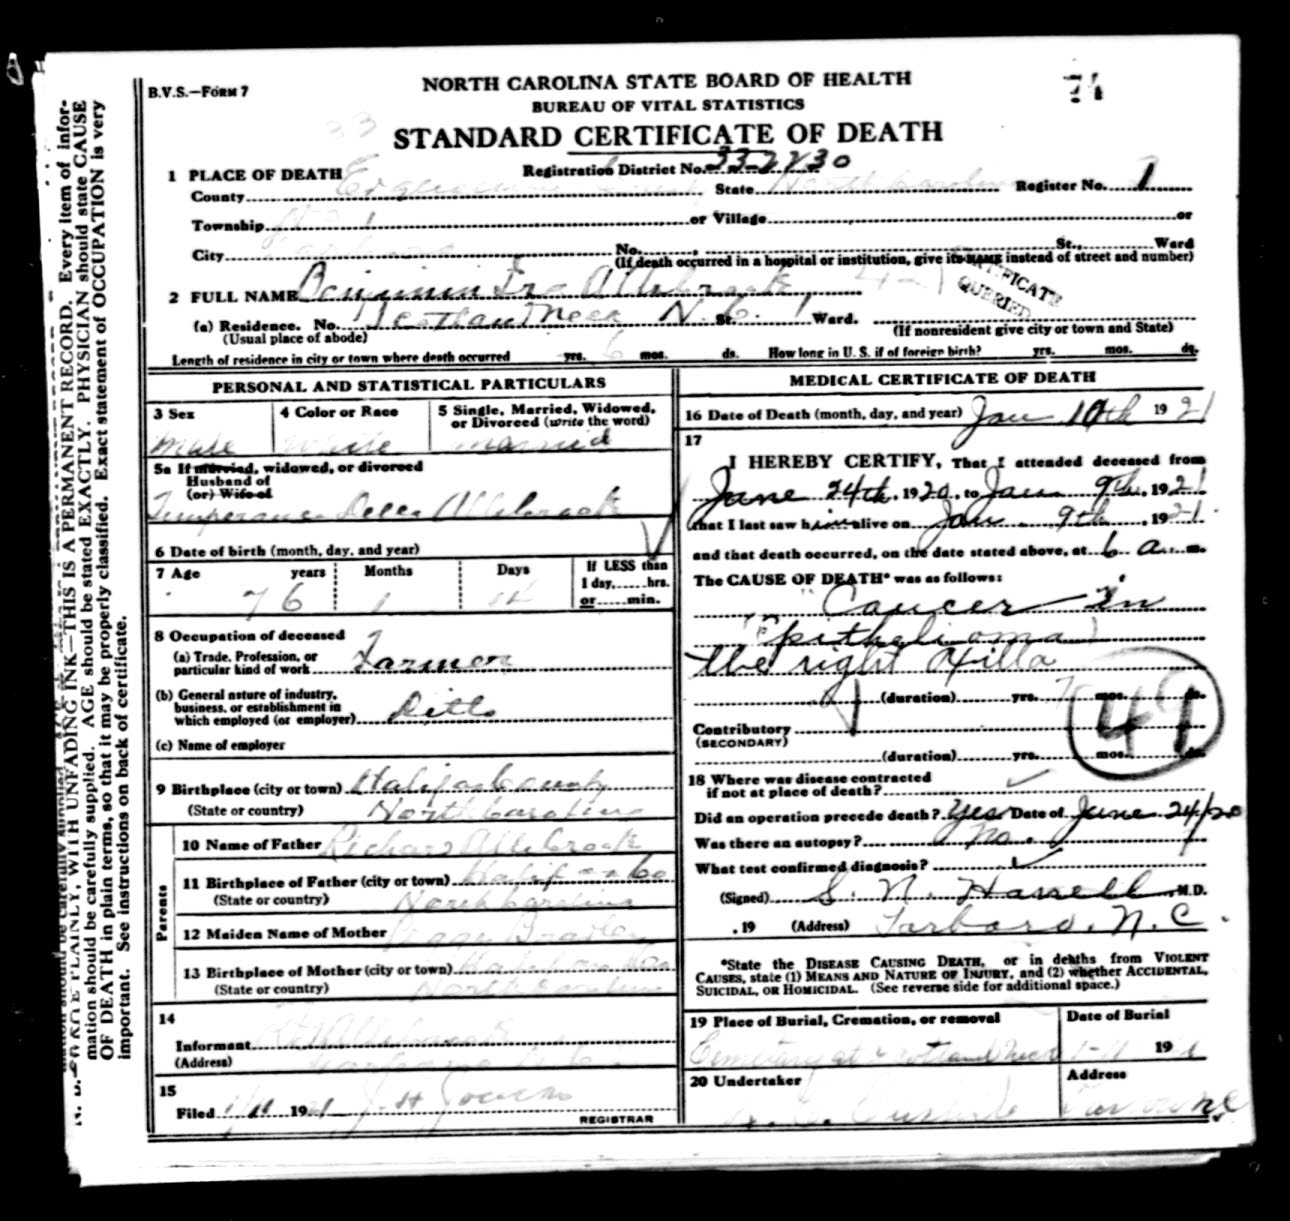 B.V.S.—FORM 7
NORTH CAROLINA STATE BOARD OF HEALTH
BUREAU OF VITAL STATISTICS
STANDARD CERTIFICATE OF DEATH
74
33
1 PLACE OF DEATH
Registration District No.
County Edgecombe State North Carolina Register No. 1
Township No 1 or Village or
City No. , St., Ward
(If death occurred in a hospital or institution, give its NAME instead of street and number)
CERTIFICATE QUERIED
2 FULL NAME Benjamin Ira Allsbrook
(a) Residence. No. Scotland Neck N. C. St. Ward.
(Usual place of abode) (If nonresident give city or town and State)
Length of residence in city or town where death occurred yrs. 6 mos. ds. How long in U. S. if of foreign birth? yrs. mos. ds.
PERSONAL AND STATISTICAL PARTICULARS
3 Sex 4 Color or Race 5 Single, Married, Widowed, or Divorced (write the word)
Male White Married
5a If married, widowed, or divorced
Husband of
(or) Wife of
Temperance Allsbrook
6 Date of birth (month, day, and year)
7 Age years Months Days If LESS than 1 day, hrs. or min.
76 1 14
8 Occupation of deceased
(a) Trade, Profession, or particular kind of work Farmer
(b) General nature of industry, business, or establishment in which employed (or employer) Ditto
(c) Name of employer
9 Birthplace (city or town) Halifax County
(State or country) North Carolina
Parents
10 Name of Father Richard Allsbrook
11 Birthplace of Father (city or town) Halifax Co
(State or country) North Carolina
12 Maiden Name of Mother Bradley
13 Birthplace of Mother (city or town) Halifax Co
(State or country) North Carolina
14
Informant Allsbrook
(Address)
15
Filed 1/11 1921 J H
REGISTRAR
MEDICAL CERTIFICATE OF DEATH
16 Date of Death (month, day, and year) Jan 10th 1921
17
I HEREBY CERTIFY, That I attended deceased from
June 24th, 1920, to Jan 9th, 1921
that I last saw him alive on Jan 9th, 1921.
and that death occurred, on the date stated above, at 6 a. m.
The CAUSE OF DEATH* was as follows:
"Cancer in
(Epithelioma)
the right Axilla
(duration) yrs. 7 mos. ds.
49
Contributory
(SECONDARY)
(duration) yrs. mos. ds.
18 Where was disease contracted
if not at place of death?
Did an operation precede death? Yes Date of June 24/20
Was there an autopsy? No.
What test confirmed diagnosis?
(Signed) S. N. Harrell, M.D.
, 19 (Address) Tarboro, N. C.
*State the DISEASE CAUSING DEATH, or in deaths from VIOLENT CAUSES, state (1) MEANS AND NATURE OF INJURY, and (2) whether ACCIDENTAL, SUICIDAL, OR HOMICIDAL. (See reverse side for additional space.)
19 Place of Burial, Cremation, or removal Date of Burial
Cemetery at Scotland Neck 1-11 1921
20 Undertaker Address
N.C.
mation should be carefully supplied. AGE should be stated EXACTLY. PHYSICIAN should state CAUSE
OF DEATH in plain terms, so that it may be properly classified. Exact statement of OCCUPATION is very
important. See instructions on back of certificate.
PLAINLY, WITH UNFADING INK—THIS IS A PERMANENT RECORD. Every item of infor-